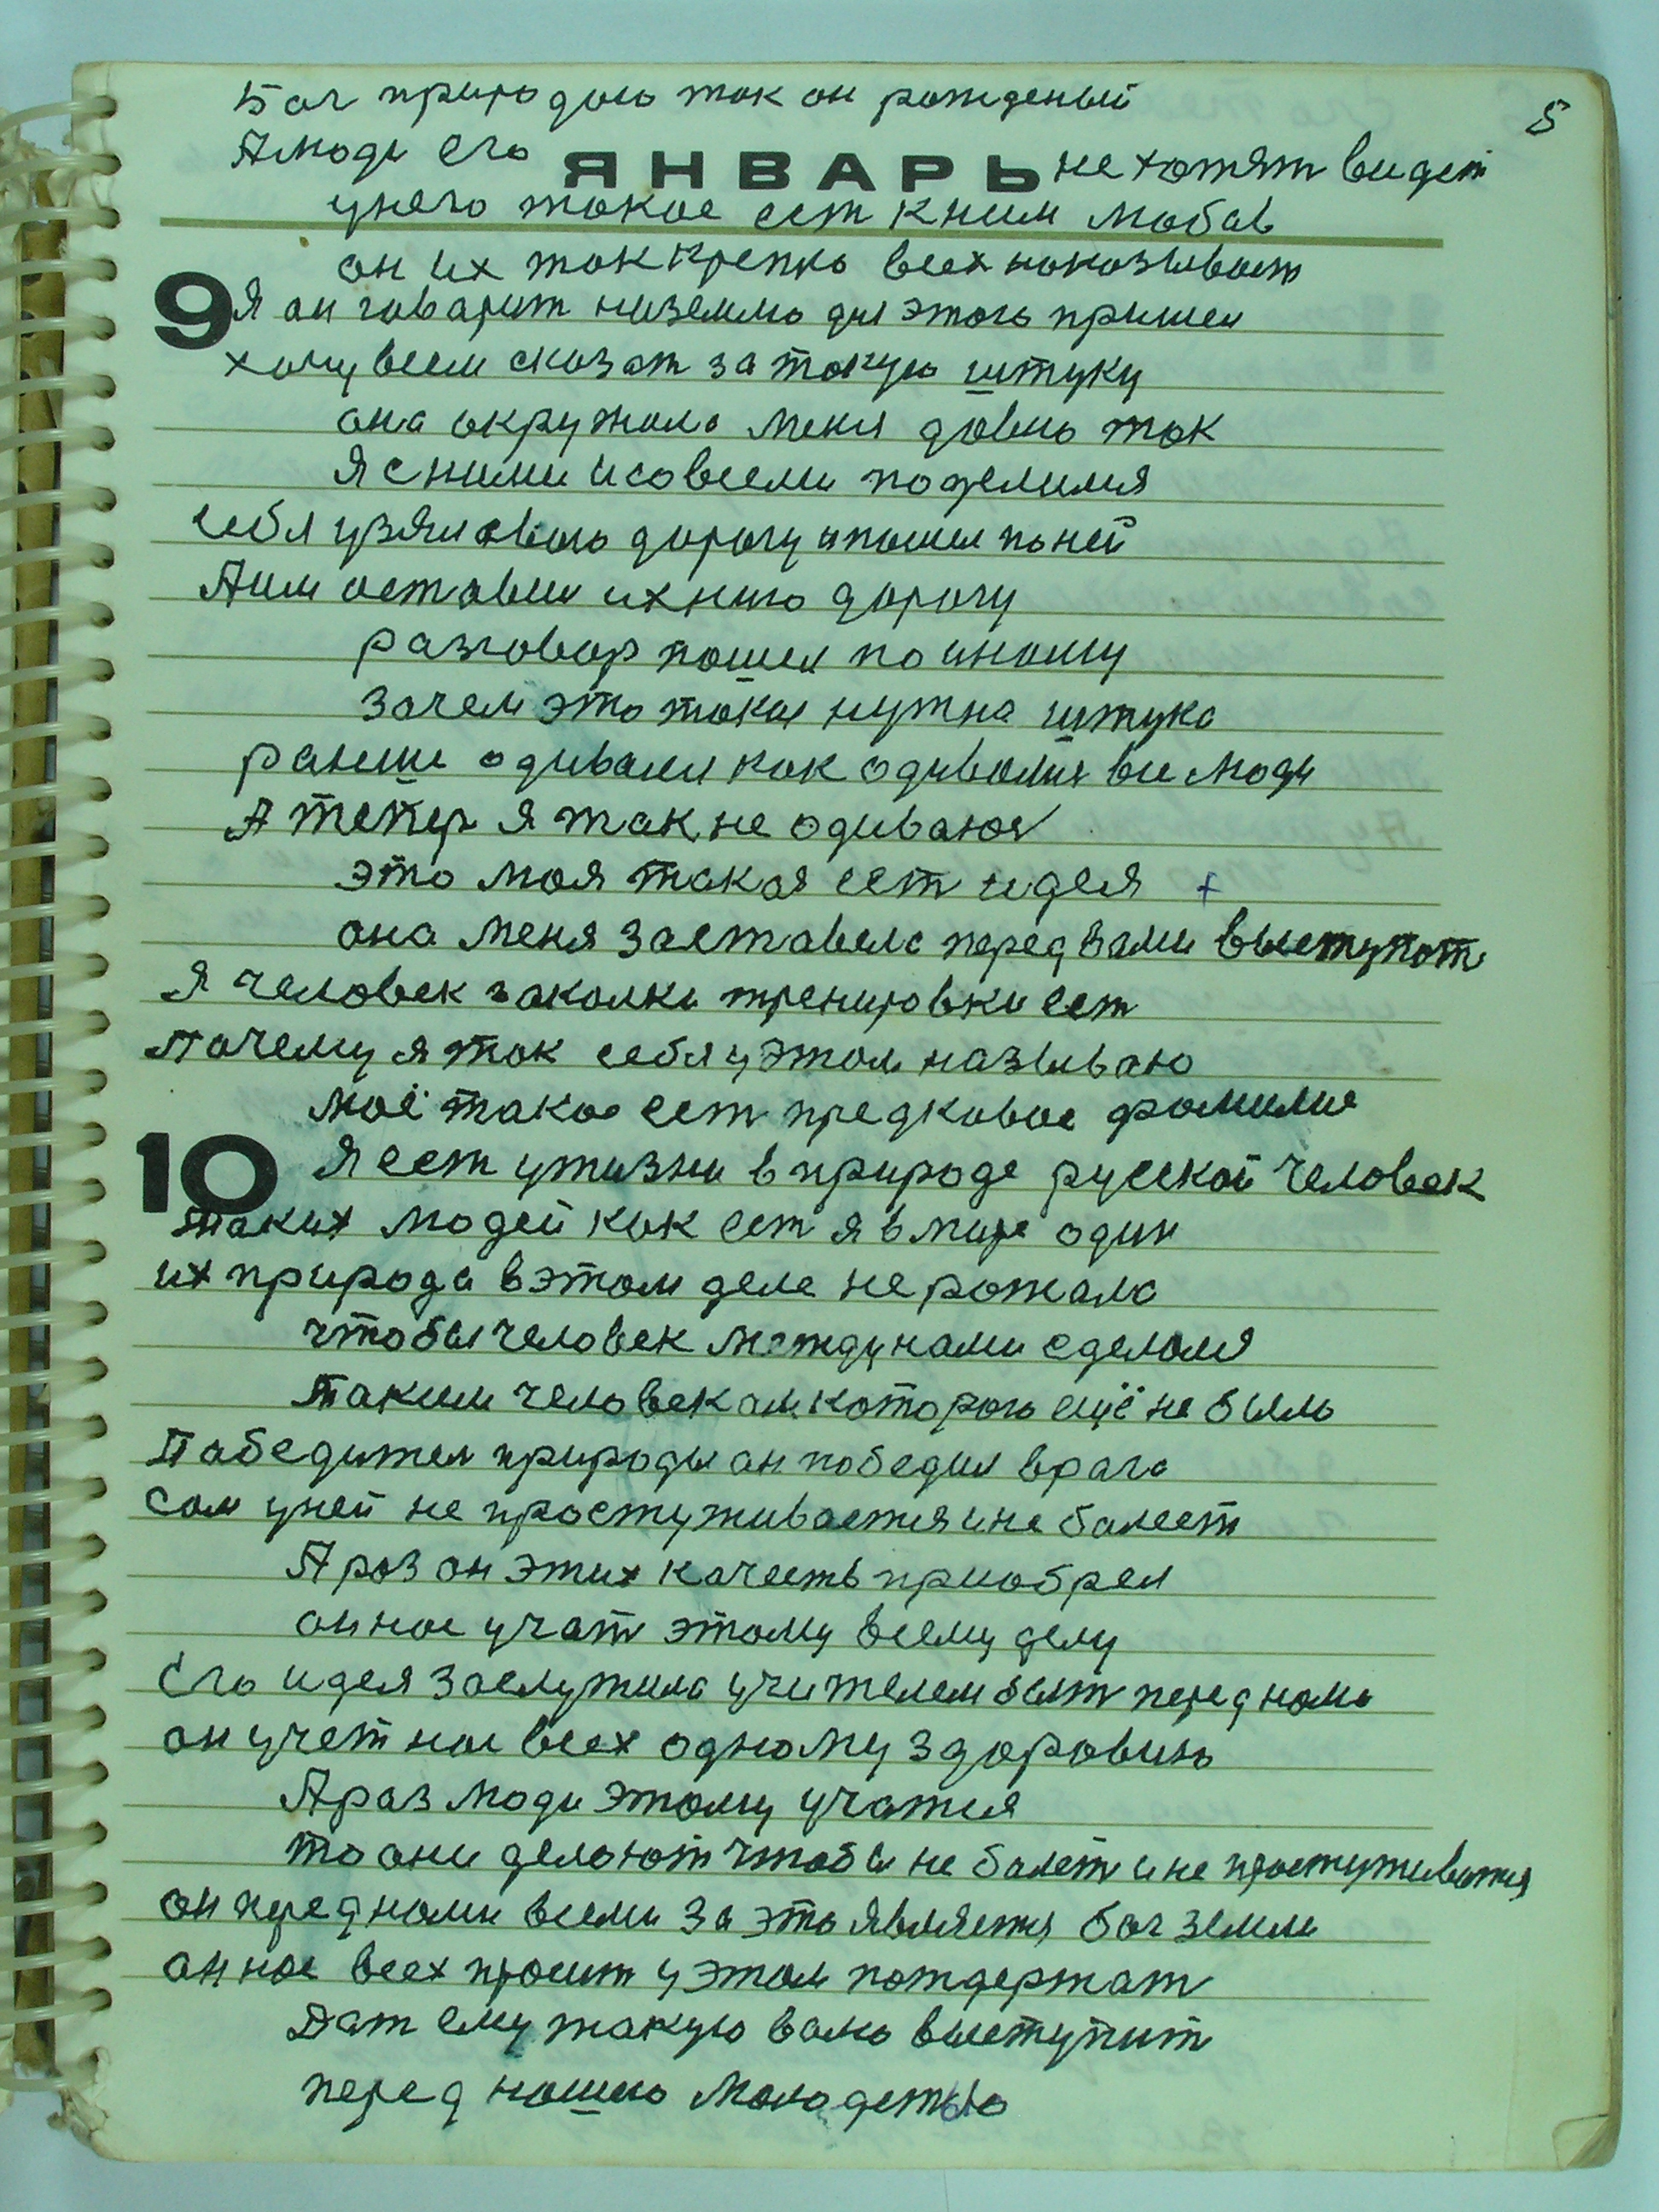 5
Бог природою так он рожденый
А люди его не хотят видет
ЯНВАРЬ
унего такое ест к ним любов
он их так крепко всех наказывает
9
Я он говарит наземлю для этого пришел
хочу всем сказат за такую штуку
она окружала меня давно так
Я с ними и совсеми поделился
себя узял свою дорогу и пошел по ней
А им оставил ихнию дорогу
разговор пошел по иному
зачем это такая нужна штука
ранше одивался как одивалися все люди
А тепер я так не одиваюся
это моя такая ест идея
она меня заставила перед вами выступат
Я человек закалки тренировки ест
Почему я так себя у этом называю
моё такое ест предковое фамилие
10
Я ест у жизни в природе русской человек
таких людей как ест я в мире один
их природа в этом деле не рожала
чтобы человек между нами сделался
таким человекам которого ещё не было
Пабедител природы он победил врага
сам у ней не простуживается и не балеет
А раз он этих качеств приобрел
он нас учат этому всему делу
Его идея заслужила учителем быт перед намы
он учет нас всех одному здоровию
А раз люди этому учатся
то они делают чтобы не балет и не простуживатся
он перед нами всеми за это является бог земли
он нас всех просит у этом потдержат
Дат ему такую волю выступит
перед нашею молодежью